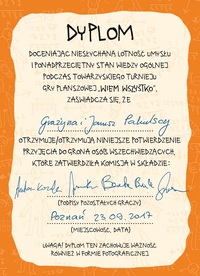 DYPLOM
DOCENIAJĄC NIESŁYCHANĄ LOTNOŚĆ UMYSŁU
I PONADPRZECIĘTNY STAN WIEDZY OGÓLNEJ
PODCZAS TOWARZYSKIEGO TURNIEJU
GRY PLANSZOWEJ „WIEM WSZYSTKO”,
ZAŚWIADCZA SIĘ, ŻE
Grażyna i Janusz
OTRZYMUJE/OTRZYMUJĄ NINIEJSZE POTWIERDZENIE
PRZYJĘCIA DO GRONA OSÓB WSZECHWIEDZĄCYCH,
KTÓRE ZATWIERDZIŁA KOMISJA W SKŁADZIE:
(PODPISY POZOSTAŁYCH GRACZY)
Poznań 23.09.2017
(MIEJSCOWOŚĆ, DATA)
UWAGA! DYPLOM TEN ZACHOWUJE WAŻNOŚĆ
RÓWNIEŻ W FORMIE FOTOGRAFICZNEJ